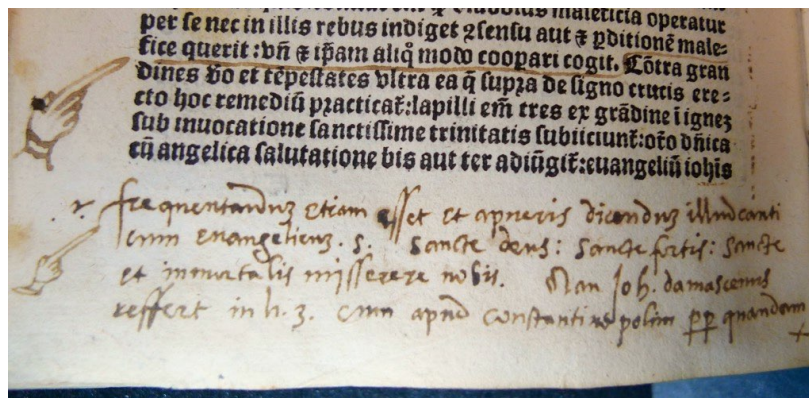 per se nec in illis rebus indiget ꝯsensu aut ⁊ ꝑditionē male-
fice querit : vn̄ ⁊ ip̄am aliq̊ modo cooꝑari cogit. Cōtra gran
dines v̊o et tēpestates vltra ea q̄ supra de signo crucis ere-
cto hoc remediū practicat᷑: lapilli em̄ tres ex grādine ī ignez
sub inuocatione sanctissime trinitatis subiiciunt᷑: orō dn̄ica
cū angelica salutatione bis aut ter adiūgit᷑: euangeliū ioh̄is
frequentanduz etiam esset et apueris dicenduz illud canti
cum euangelicuz . s. sancte deus : sancte fortis : sancte
et inmortalis misserere nobis. Nan Joh. damascenus
reffert in h. 3. cum apud constantinopolim ꝑꝑ quandam